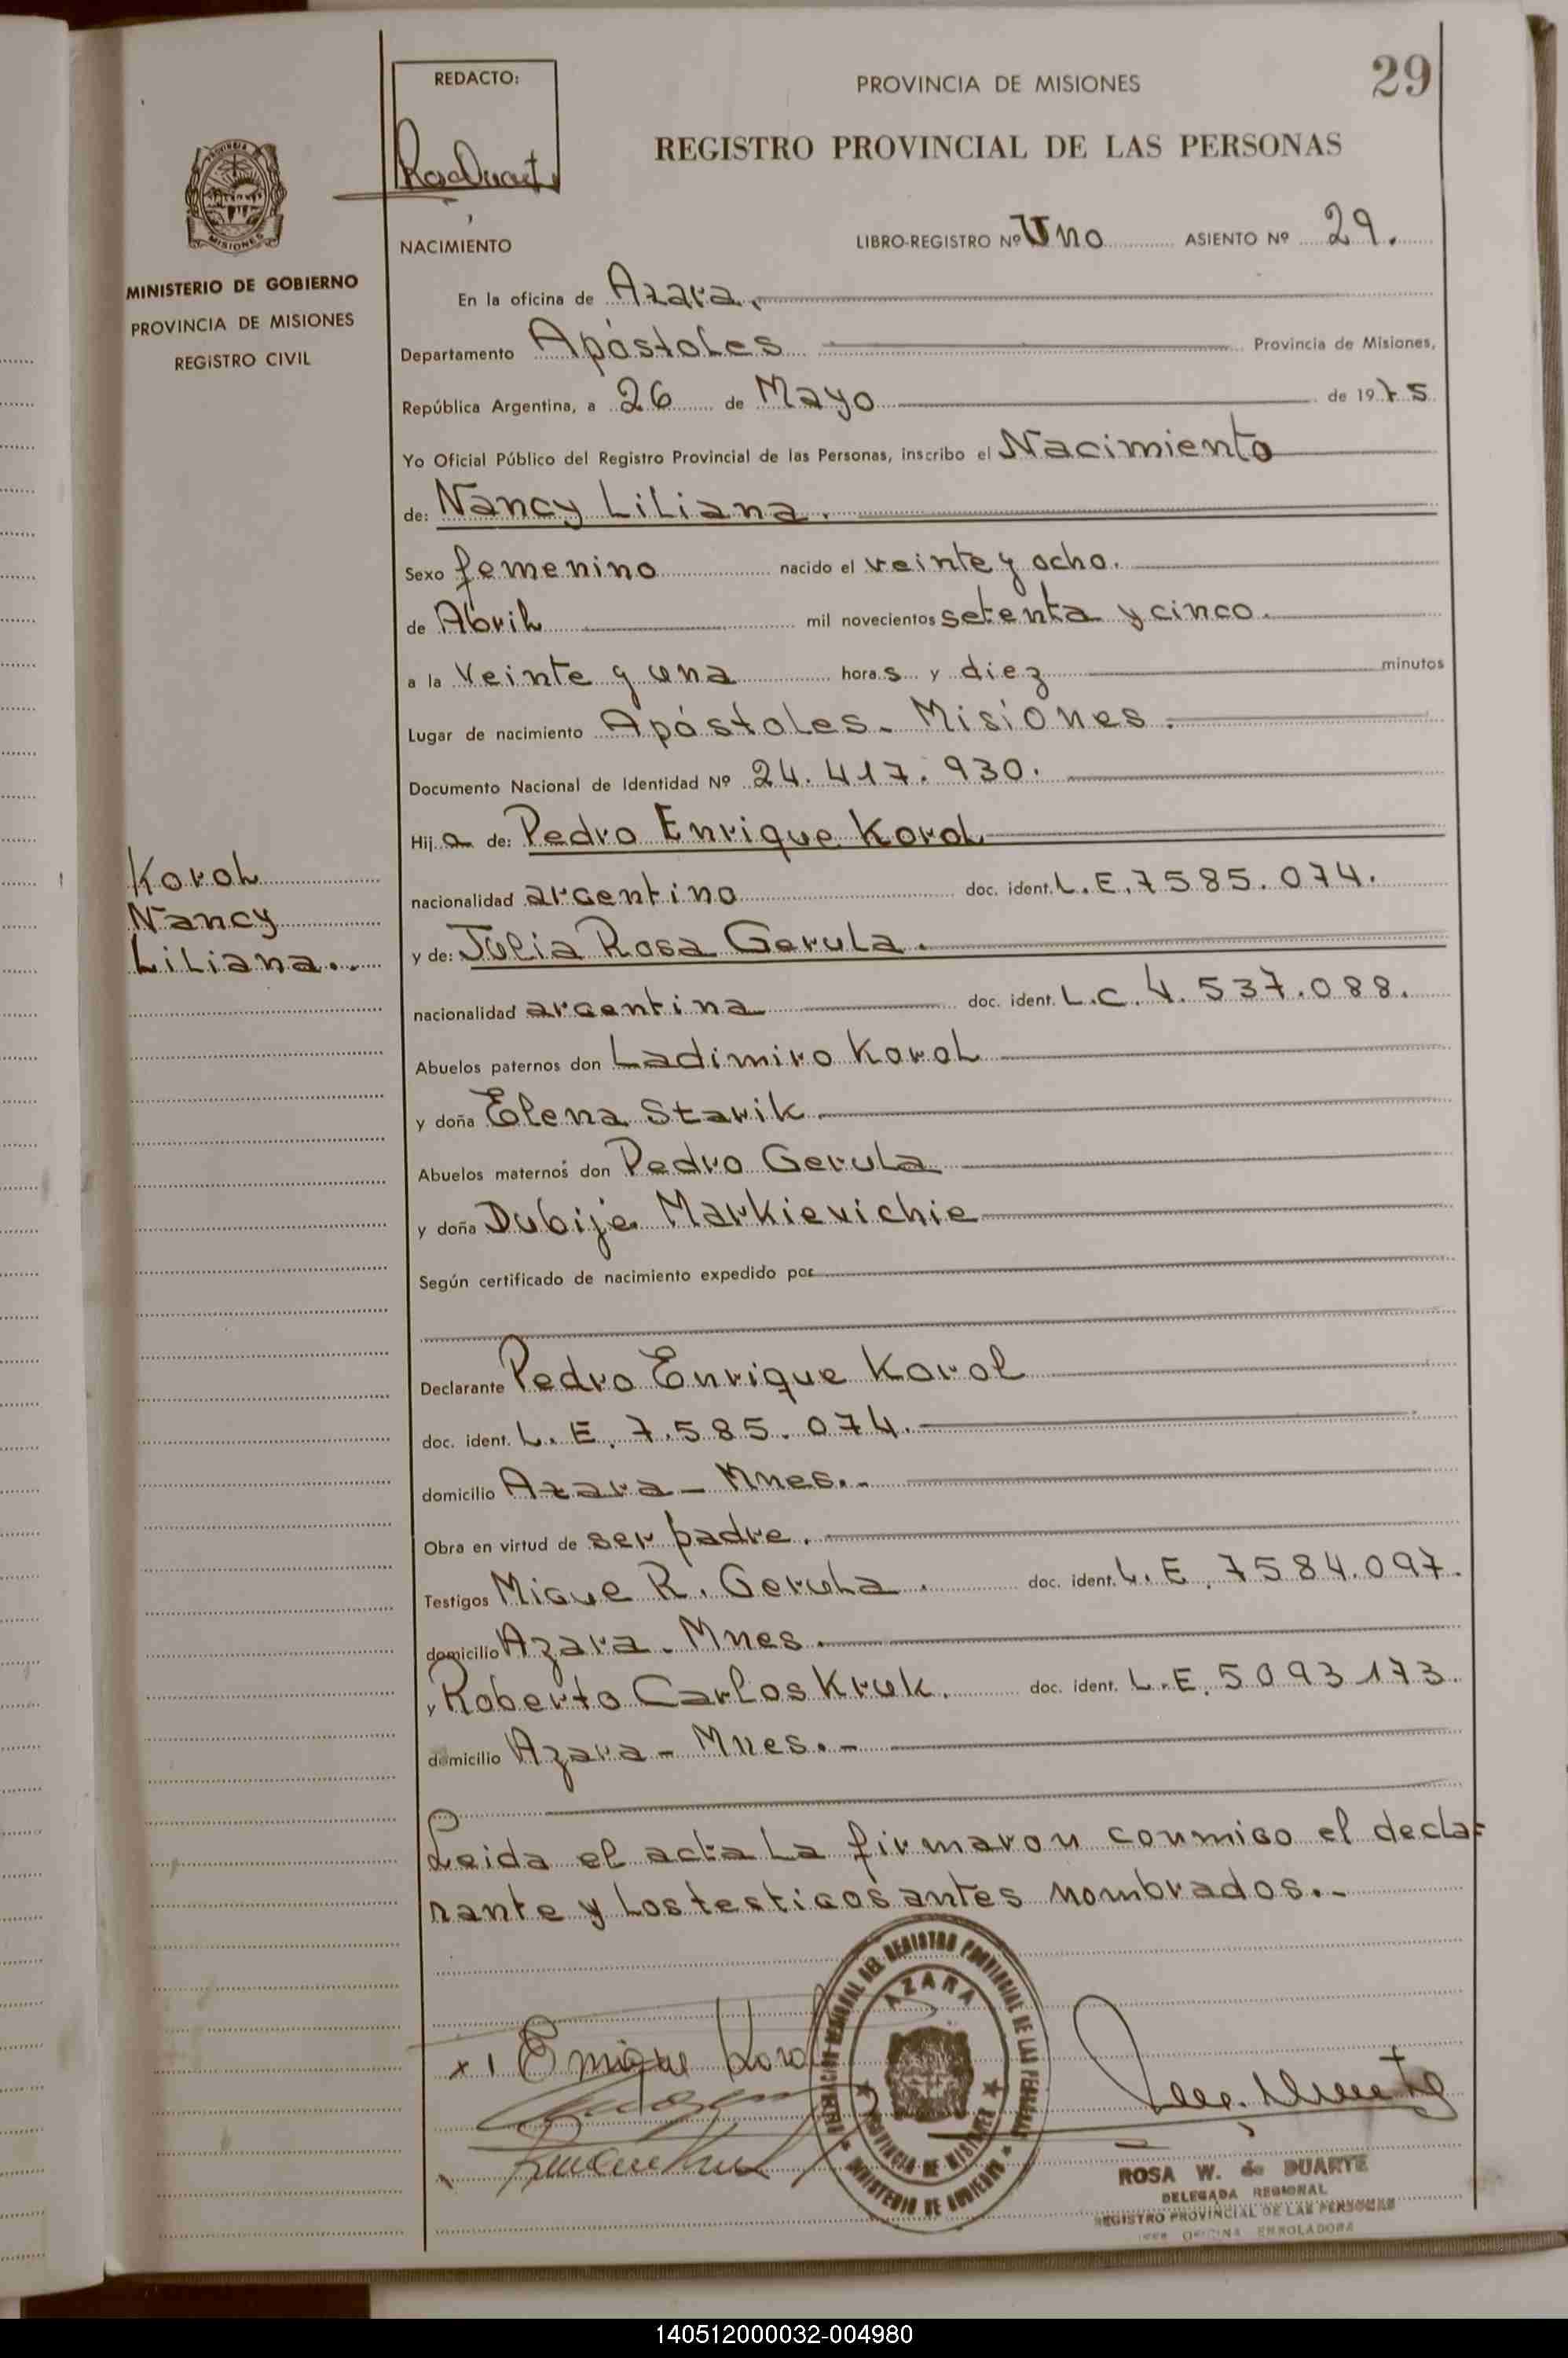 29
REDACTO:
PROVINCIA DE MISIONES
REGISTRO PROVINCIAL DE LAS PERSONAS
PROVINCIA
MISIONES
MINISTERIO DE GOBIERNO
PROVINCIA DE MISIONES
REGISTRO CIVIL
NACIMIENTO
LIBRO-REGISTRO Nº Uno ASIENTO Nº 29.
En la oficina de Azara.
Departamento Apóstoles Provincia de Misiones,
República Argentina, a 26 de Mayo de 1975
Yo Oficial Público del Registro Provincial de las Personas, inscribo el Nacimiento
de: Nancy Liliana.
Sexo femenino nacido el veinte y ocho.
de Abril mil novecientos setenta y cinco.
a la Veinte y una horas y diez minutos
Lugar de nacimiento Apóstoles - Misiones.
Documento Nacional de Identidad Nº 24.417.930.
Hija de: Pedro Enrique Korol
nacionalidad argentino doc. ident. L.E. 7585.074.
y de: Julia Rosa Gerula.
nacionalidad argentina doc. ident. L.C. 4.537.088.
Abuelos paternos don Ladimiro Korol
y doña Elena Starik
Abuelos maternos don Pedro Gerula
y doña Dubije Markievichie
Según certificado de nacimiento expedido por
Declarante Pedro Enrique Korol
doc. ident. L.E. 7.585.074.
domicilio Azara - Mnes.-
Obra en virtud de ser padre.
Testigos Migue R. Gerula. doc. ident. L.E. 7584.097.
domicilio Azara - Mnes.
y Roberto Carlos Kruk. doc. ident. L.E. 5093173.
domicilio Azara - Mnes.-
Leida el acta la firmaron conmigo el decla=
rante y los testigos antes nombrados.-
Korol
Nancy
Liliana.-
Enrique Korol
DELEGACION REGIONAL DEL REGISTRO PROVINCIAL DE LAS PERSONAS
AZARA
PROVINCIA DE MISIONES
MINISTERIO DE GOBIERNO
ROSA W. de DUARTE
DELEGADA REGIONAL
REGISTRO PROVINCIAL DE LAS PERSONAS
OFICINA ENROLADORA
140512000032-004980